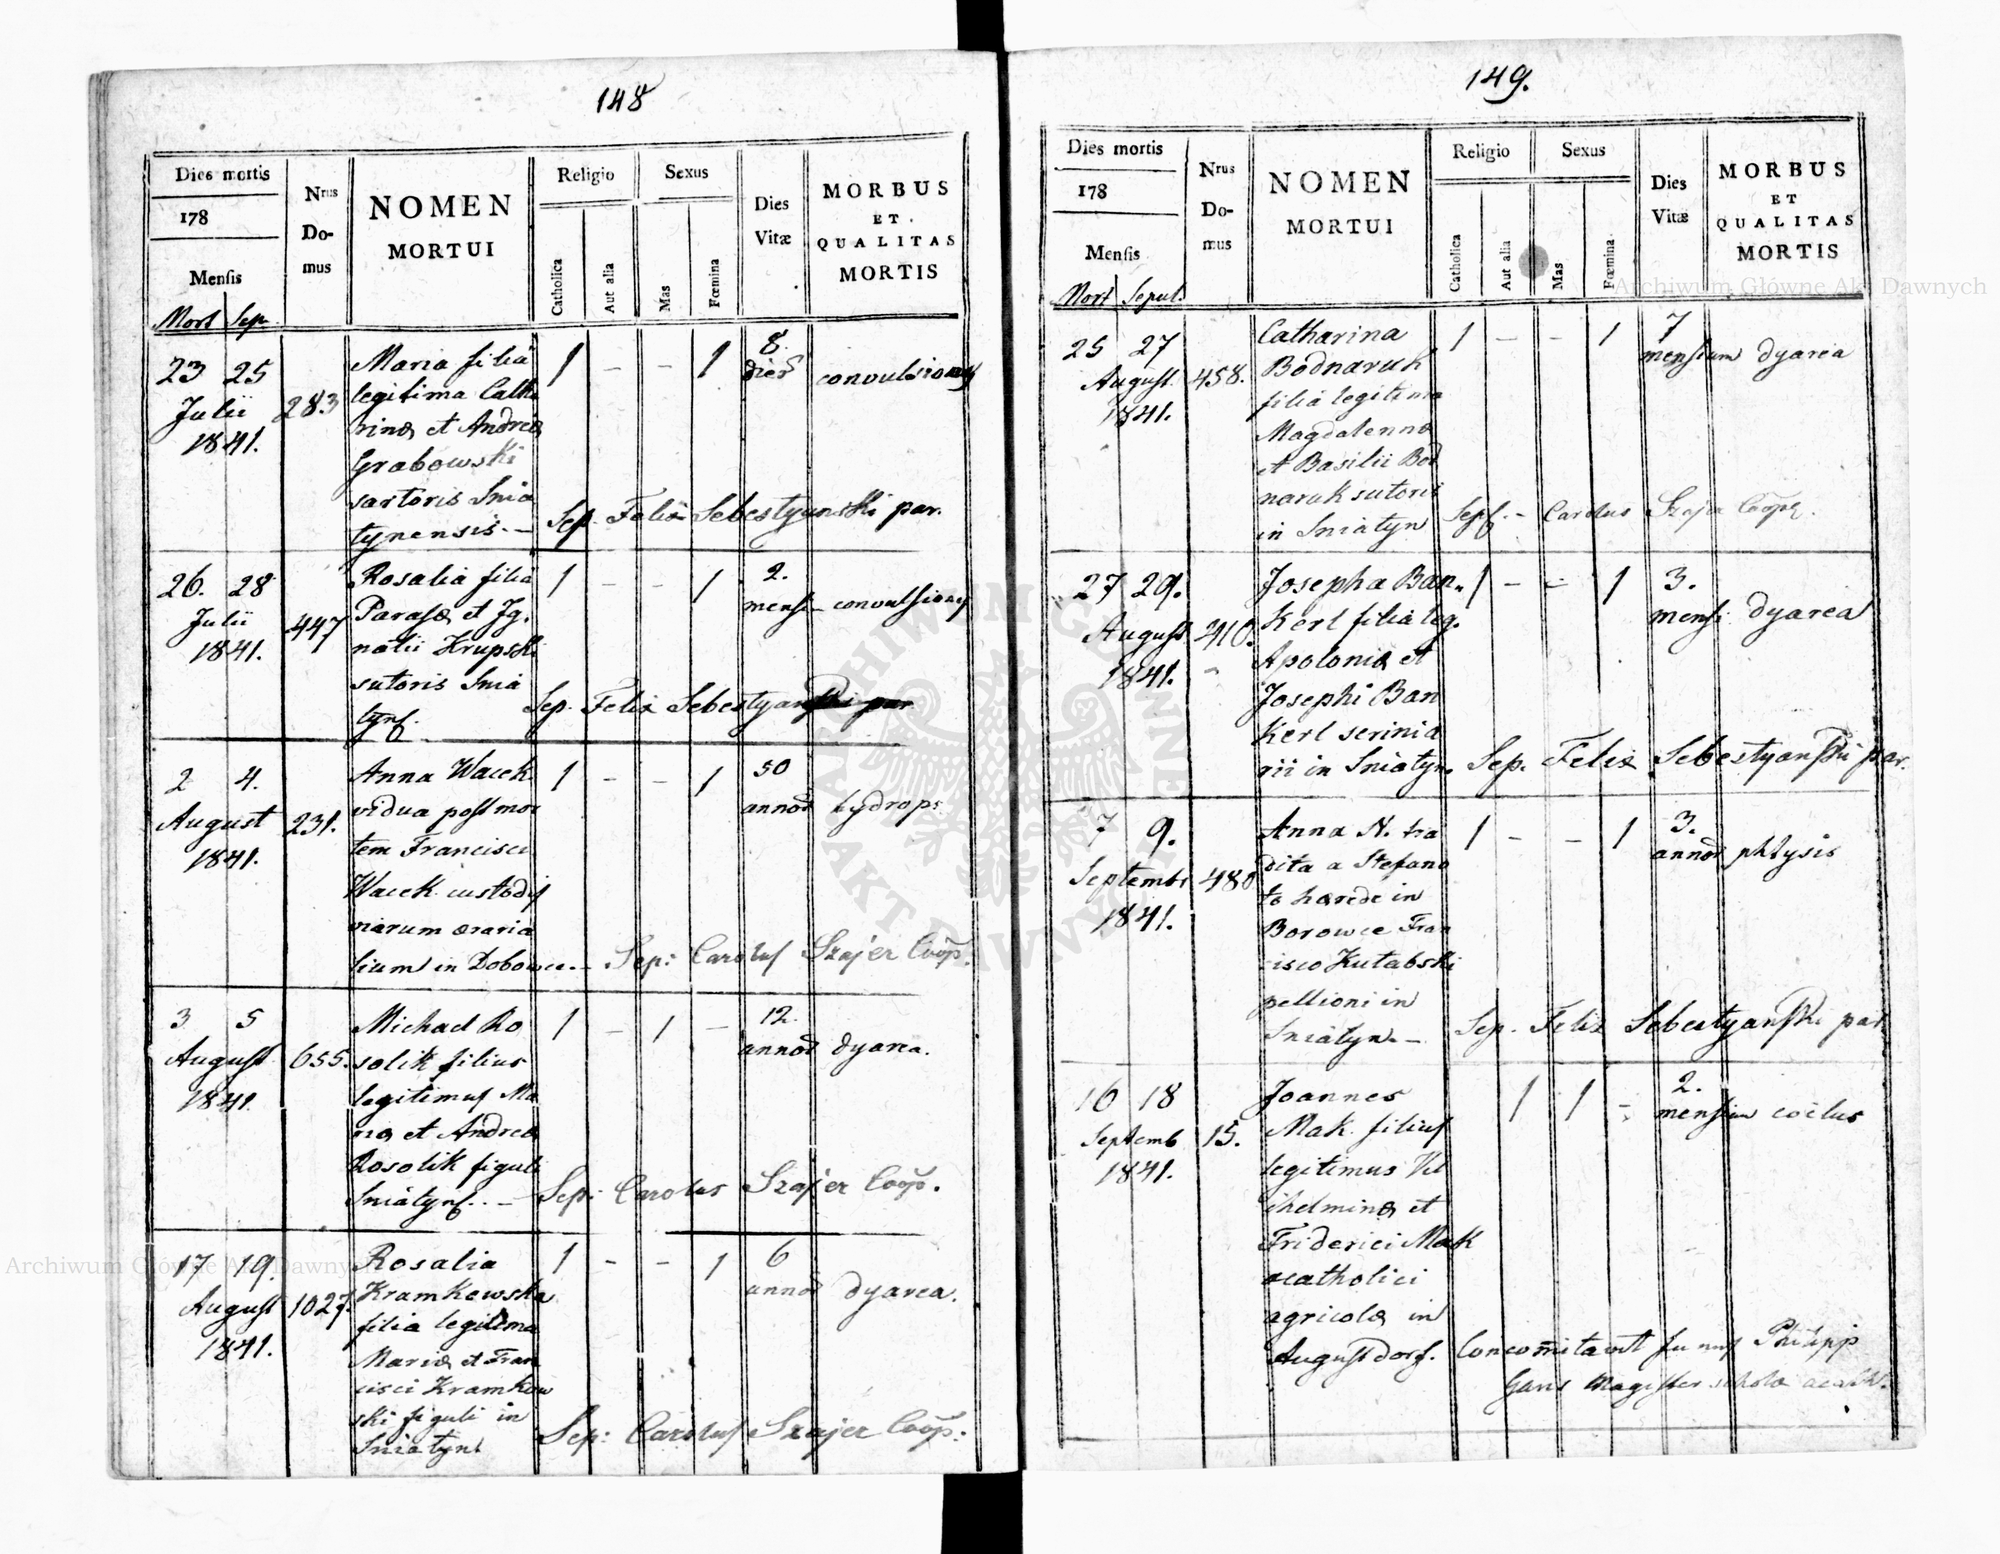 148
Dies mortis
178
Mensis
Mort Sep.
Nrus
Do-
mus
NOMEN
MORTUI
Religio
Catholica
Aut alia
Sexus
Mas
Fœmina
Dies
Vitæ
MORBUS
ET
QUALITAS
MORTIS
23 25
Julii
1841.
283
Maria filia
legitima Catha
rinæ et Andreæ
Grabowski
sartoris Snia
tynensis. —
1 - - 1
8.
dier
convulsiones
Sep. Felix Sebestyanski par.
26. 28
Julii
1841.
447
Rosalia filia
Parasæ et Ig.
natii Krupski
sutoris Snia
tyns.
1 - - 1
2.
mensi convulsiones
Sep. Felix Sebestyanski par
2 4.
August
1841.
231.
Anna Wacek
vidua post mor
tem Francisci
Wacek custodis
viarum æraria
lium in
1 - - 1
50
annor hydrops
Sep: Carolus Szajer Coop.
3 5
August
1841.
655.
Michael Ro
solik filius
legitimus Ma
riæ et Andreæ
Rosolik figuli
Sniatyns. . —
1 - 1 -
12.
annor dyarea.
Sep: Carolus Szajer Coop.
17 19.
August
1841.
1027.
Rosalia
Kramkowska
filia legitima
Mariæ et Fran
cisci Kramkow
ski figuli in
Sniatyn
1 - - 1
6
annor dyarea.
Sep: Carolus Szajer Coop:
149.
Dies mortis
178
Mensis
Mort Sepul.
Nrus
Do-
mus
NOMEN
MORTUI
Religio
Catholica
Aut alia
Sexus
Mas
Fœmina
Dies
Vitæ
MORBUS
ET
QUALITAS
MORTIS
25 27
August.
1841.
458.
Catharina
Bodnaruk
filia legitima
Magdalennæ
et Basilii Bod
naruk sutoris
in Sniatyn
1 - - 1
7
mensium dyarea
Carolus Szajer
27 29.
August
1841.
410.
Josepha Ban„
kerl filia leg.
Apoloniæ et
Josephi Ban
kerl scrinia
rii in Sniatyn.
1 - - 1
3.
mensi dyarea
Sep. Felix Sebestyanski par.
7 9.
Septembr
1841.
480
Anna N. tra
dita a Stefano
to hærede in
Borowce Fran
cisco Kutabski
pellioni in
Sniatyn. —
1 - - 1
3.
annor phtysis
Sep. Felix Sebestyanski par
16 18
Septemb
1841.
15.
Joannes
Mak filius
legitimus Vil
ihelminæ et
Friderici Mak
acatholici
agricolæ in
Augustdorf.
1 1 -
2.
mensium
Concomitavit funus Philipp
Gans Magister scholæ acath.
Archiwum Główne Akt Dawnych
Archiwum Główne Akt Dawnych
ARCHIWUM GŁÓWNE AKT DAWNYCH